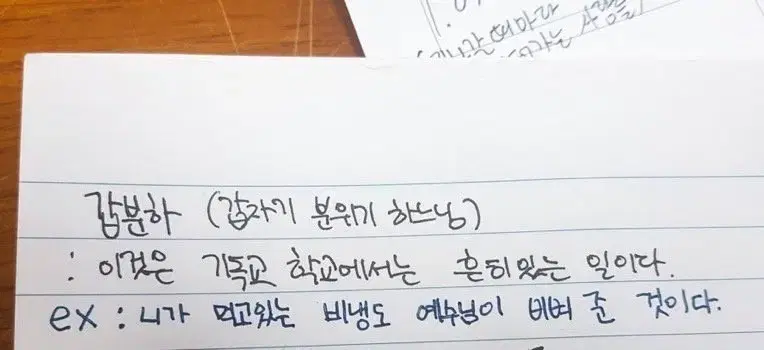 갑분하 (갑자기 분위기 하느님)
: 이것은 기독교 학교에서는 흔히있는 일이다.
ex : 니가 먹고있는 비냉도 예수님이 비벼 준 것이다.